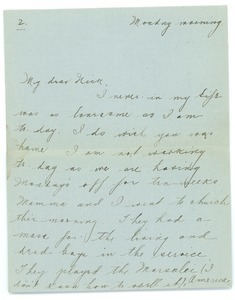 2.
Monday morning
My dear Nick,
I never in my life
was so lonesome as I am
to day. I do wish you was
home I am not working
to day as we are having
Mondays off for ten weeks
Mamma and I went to church
this morning They had a
mass for the living and
dead boys in the service
They played the Marsealee (I
don't know how to spell it) America